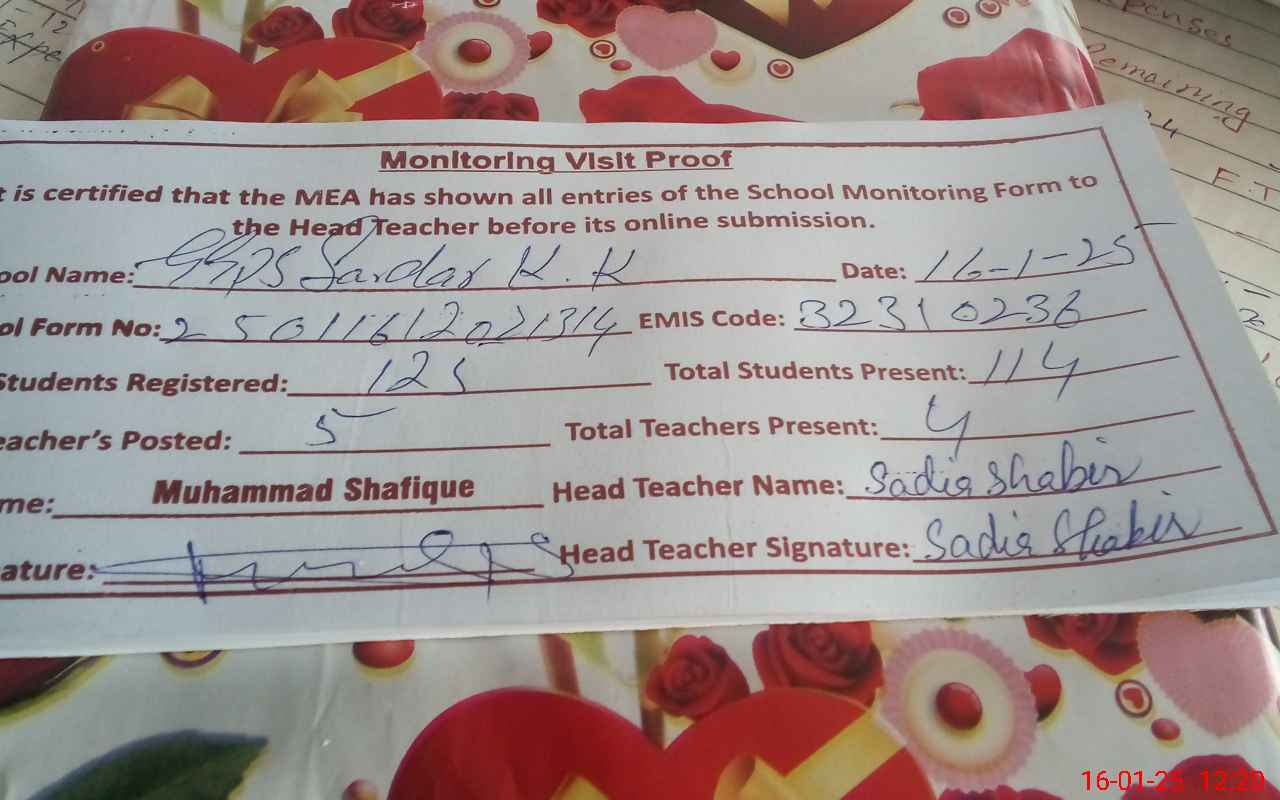 Expenses
Remaining
Monitoring Visit Proof
t is certified that the MEA has shown all entries of the School Monitoring Form to
the Head Teacher before its online submission.
ool Name: GGPS Sardar K.K Date: 16-1-25
ol Form No: 25011612021314 EMIS Code: 32310236
Students Registered: 125 Total Students Present: 114
eacher's Posted: 5 Total Teachers Present: 4
me: Muhammad Shafique Head Teacher Name: Sadia Shabir
ature: Head Teacher Signature: Sadia Shabir
16-01-25 12:20